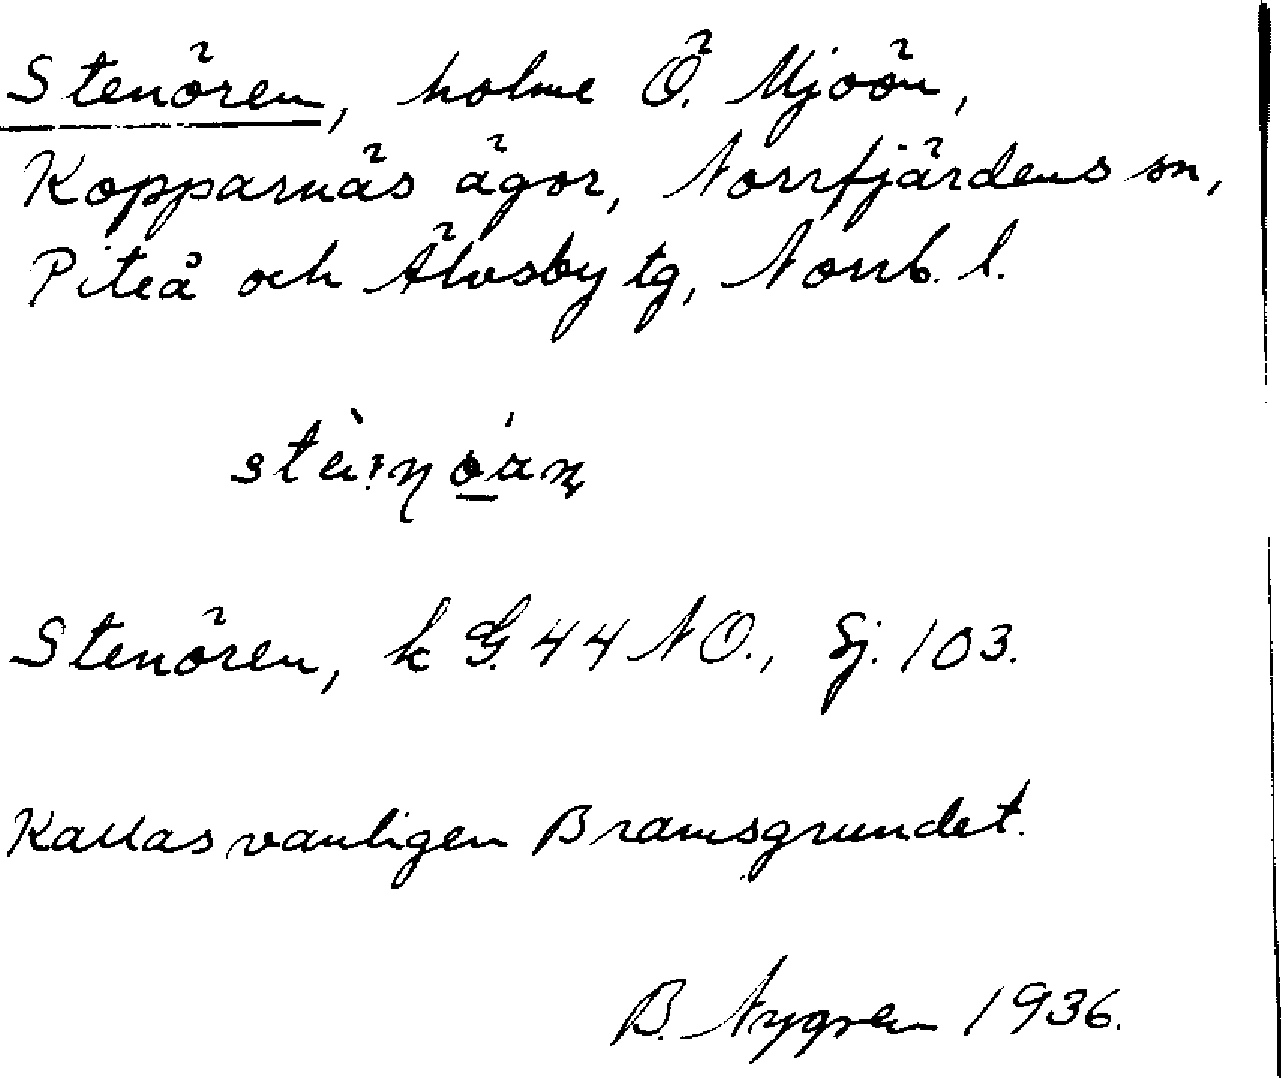 Stenören, holme Ö. Mjoön,
Kopparnäs ägor, Norrfjärdens sn,
Piteå och Älvsby tg, Norrb. l.
Stenören, k G. 44 NO., Sj. 103.
Kallas vanligen Bramsgrundet.
B. Nygren 1936.